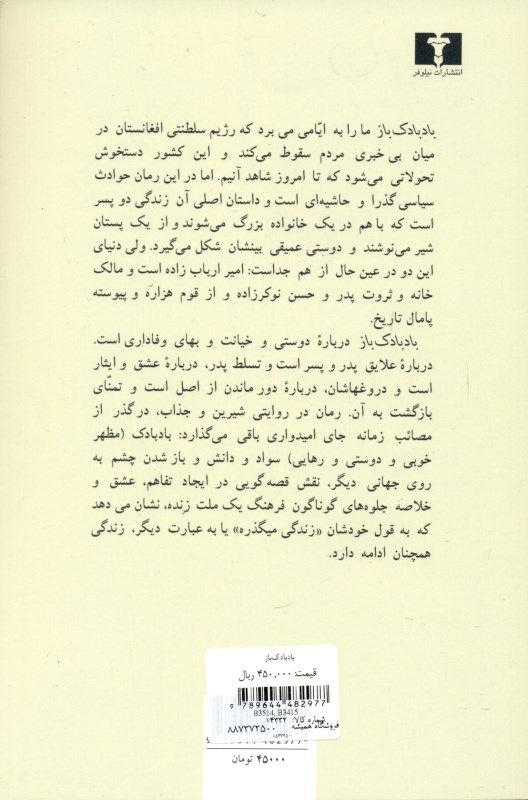 انتشارات نیلوفر
بادبادک‌باز ما را به ایّامی می برد که رژیم سلطنتی افغانستان در
میان بی خبری مردم سقوط می‌کند و این کشور دستخوش
تحولاتی می‌شود که تا امروز شاهد آنیم. اما در این رمان حوادث
سیاسی گذرا و حاشیه‌ای است و داستان اصلی آن زندگی دو پسر
است که با هم در یک خانواده بزرگ می‌شوند و از یک پستان
شیر می‌نوشند و دوستی عمیقی بینشان شکل می‌گیرد. ولی دنیای
این دو در عین حال از هم جداست: امیر ارباب زاده است و مالک
خانه و ثروت پدر و حسن نوکرزاده و از قوم هزاره و پیوسته
پامال تاریخ.
بادبادک‌باز دربارهٔ دوستی و خیانت و بهای وفاداری است.
دربارهٔ علایق پدر و پسر است و تسلط پدر، دربارهٔ عشق و ایثار
است و دروغهاشان، دربارهٔ دور ماندن از اصل است و تمنّای
بازگشت به آن. رمان در روایتی شیرین و جذاب، در گذر از
مصائب زمانه جای امیدواری باقی می‌گذارد: بادبادک (مظهر
خوبی و دوستی و رهایی) سواد و دانش و باز شدن چشم به
روی جهانی دیگر، نقش قصه‌گویی در ایجاد تفاهم، عشق و
خلاصه جلوه‌های گوناگون فرهنگ یک ملت زنده، نشان می دهد
که به قول خودشان «زندگی میگذره» یا به عبارت دیگر، زندگی
همچنان ادامه دارد.
بادبادک‌باز
قیمت: ۴۵۰,۰۰۰ ریال
9 789644 482977
B3514, B3415
شماره کالا: ۱۴۳۲۲
فروشگاه همیشه ۸۸۷۳۷۲۵۰۰
۴۵۰۰۰ تومان